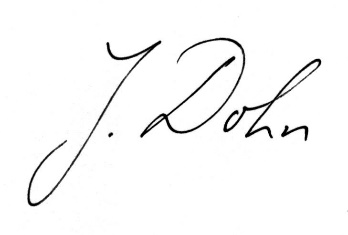 J. Dohn